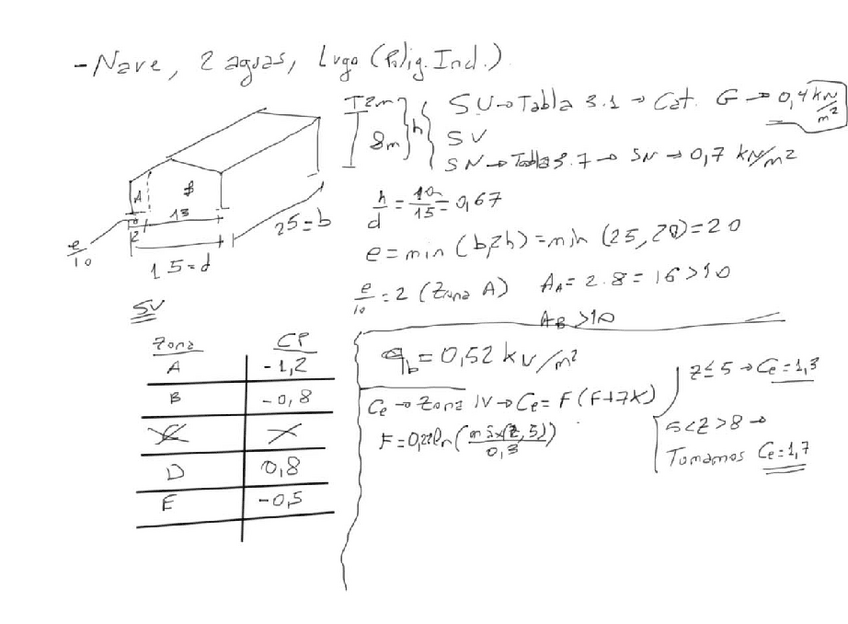 - Nave, 2 aguas, Lugo (Polig. Ind.).
I 2m
8m
h
SU → Tabla 3.1 → Cat. G → 0,4 kN/m²
SV
SN → Tabla 3.7 → SN → 0,7 kN/m²
A
B
2
13
e/10
15=d
25=b
h/d = 10/15 = 0,67
e = min (b,2h) = min (25, 20) = 20
e/10 = 2 (Zona A) A_A = 2.8 = 16 > 10
A_B > 10
SV
Zona CP
A -1,2
B -0,8
C X
D 0,8
E -0,5
q_b = 0,52 kN/m²
Ce → Zona IV → Ce = F (F+7K)
F = 0,22 ln (máx(z, 5)/0,3)
z ≤ 5 → Ce = 1,3
5 < z > 8 →
Tomamos Ce = 1,7